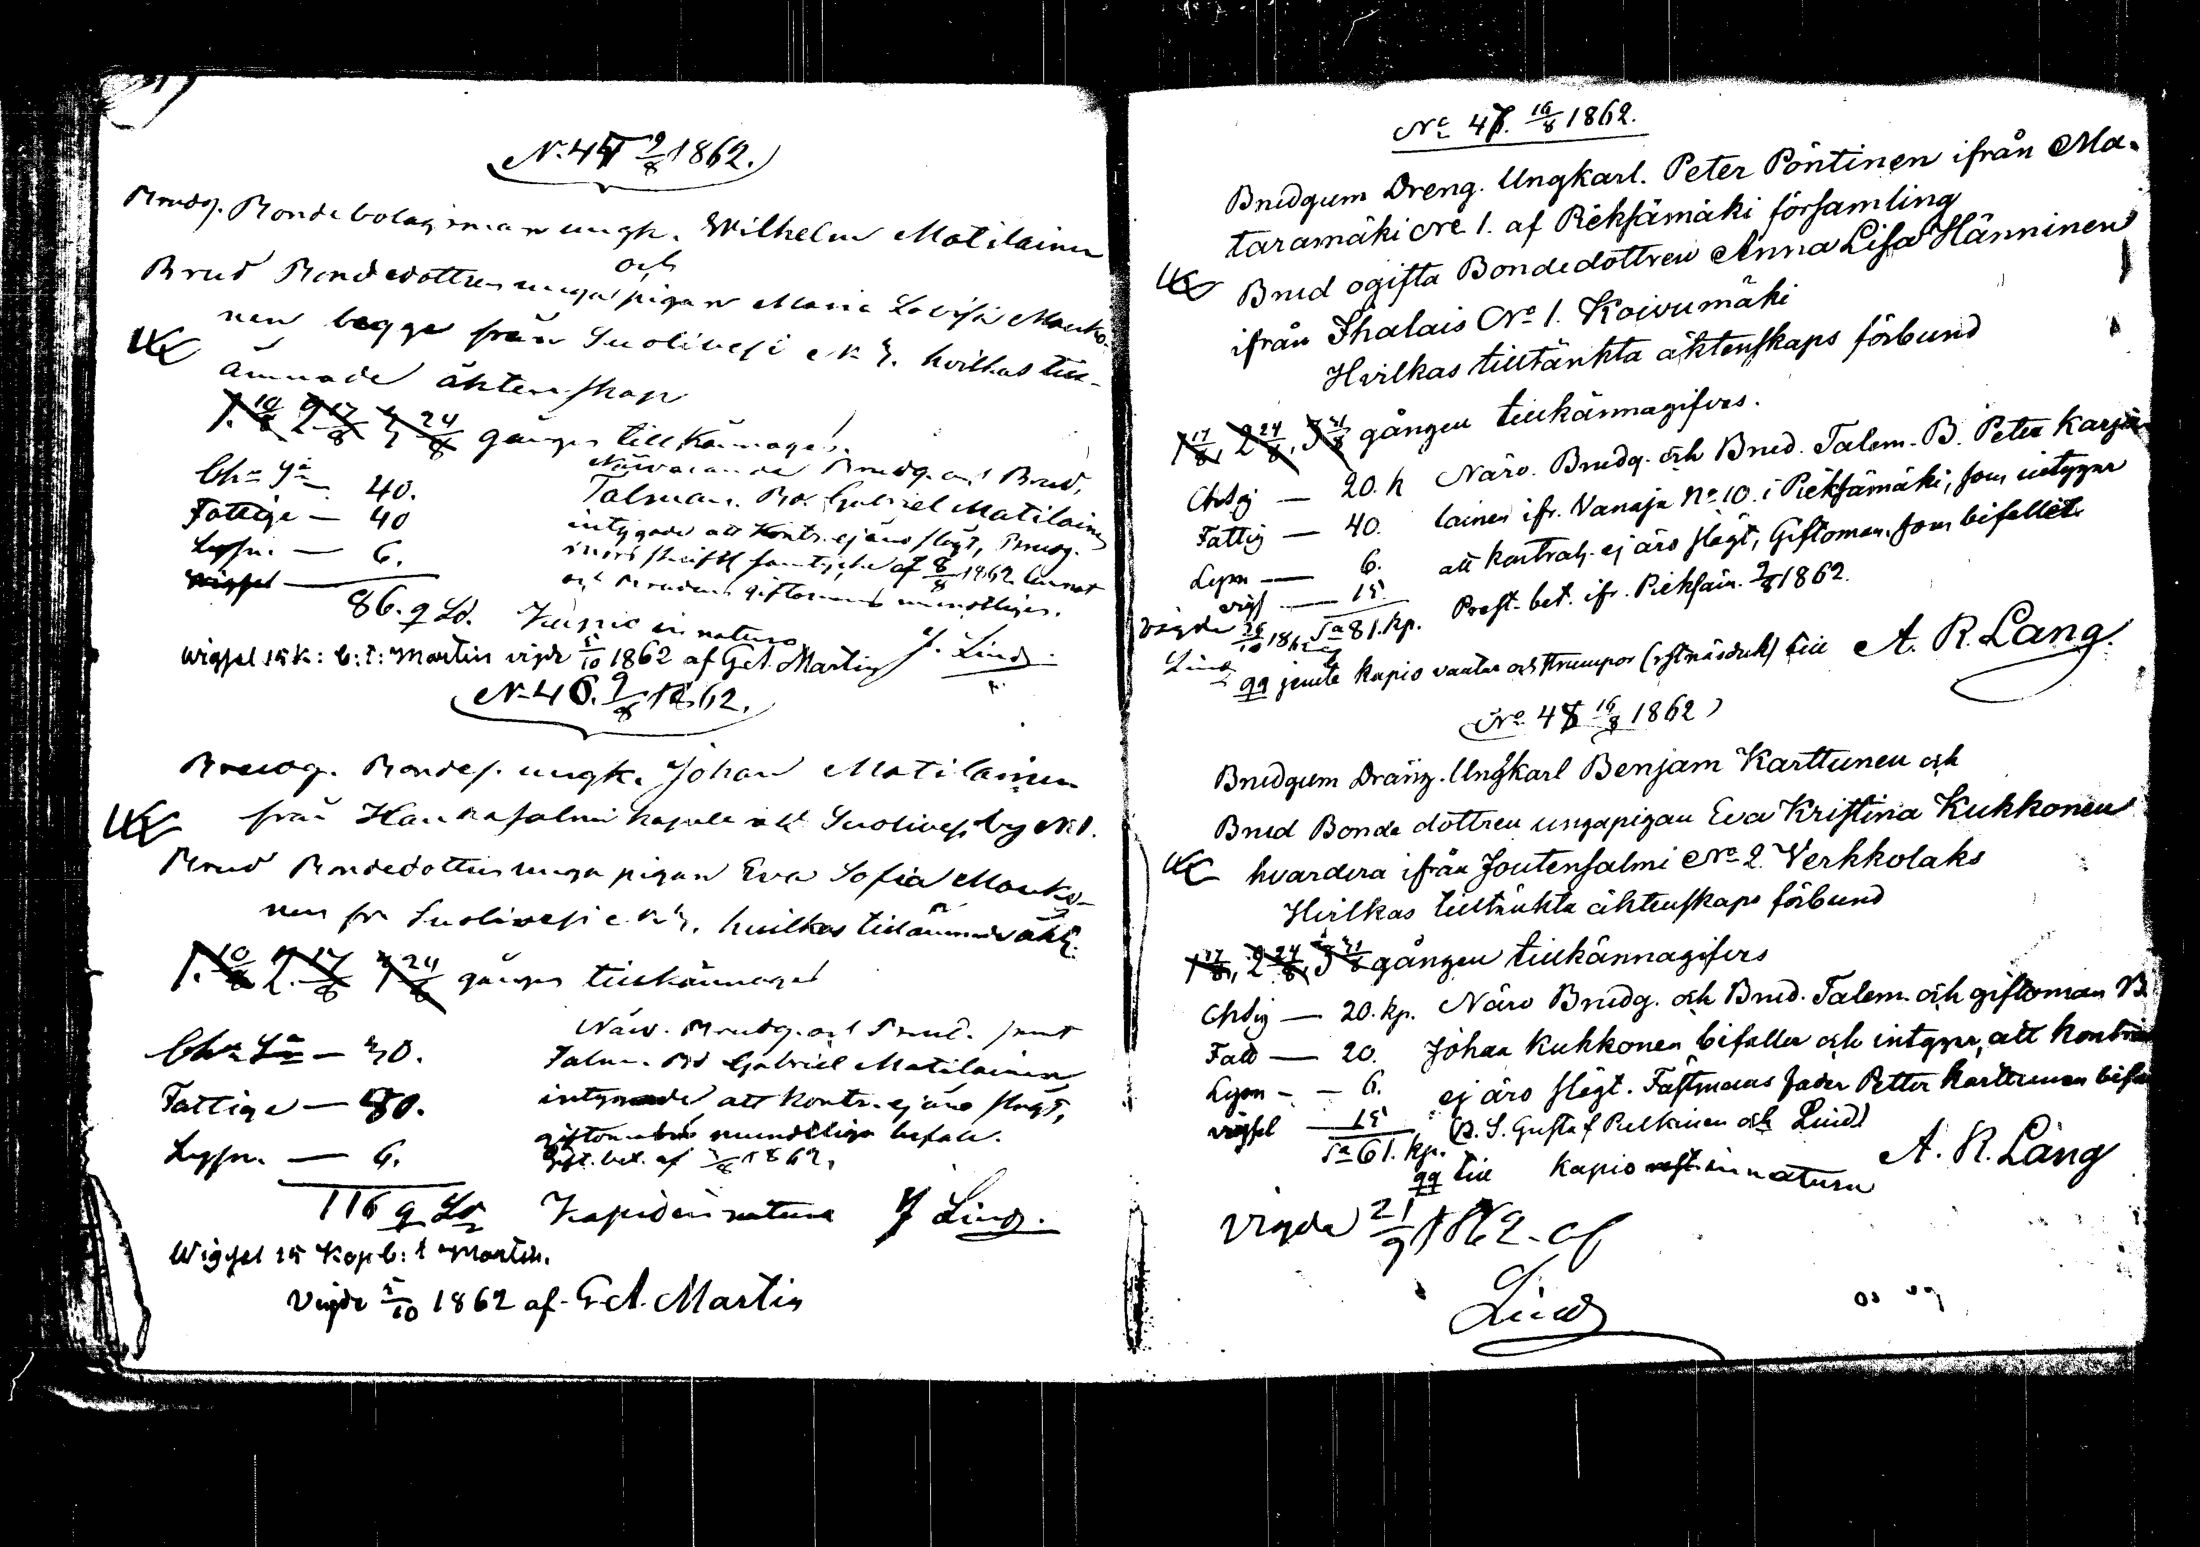 N. 45 9/8 1862.
Brudg. Bondebolagsman ungk. Wilhelm Matilainen
och
Brud Bondedottren unga pigan Maria Lovisa Manko-
nen begge från Suolivesi N 3. hvilkas till-
ämnade äktenskap
1. 10/8 2. 17/8 3 24/8 gånger tillkännages.
Närvarande Brudg. och Brud,
Ch= 40.
Talman. Bd. Gabriel Matilainen
Fattige — 40
intygade att Kontr. ej äro slägt, Brudg.
Lysn. — 6.
af 8/8 1862
Wigsel
och Brudens giftoman mundtligen.
86. q Ld. Kapio in natura
J. Lind.
Wigsel 15 K: b: t: Martin vigde 5/10 1862 af G A Martin
N. 46. 9/8 1862.
Brudg. Bondes. ungk. Johan Matilainen
från Hankasalmi kapell och Suolivesi by N 1.
Brud Bondedottren unga pigan Eva Sofia Manko-
nen fr Suolivesi N 3, hvilkas tillämnade äkt.
1. 10/8 2. 17/8 3 24/8 gånger tillkännages
Närv. Brudg. och Brud. samt
Ch= — 30.
Talm. Bd Gabriel Matilainen
Fattige — 80.
intygade att Kontr. ej äro slägt,
giftoman mundtliga bifall.
Lysn. — 6.
bet. af 3/8 1862,
116 q Ld Kapio in natura J Lind.
Wigsel 15 Kop b: t Martin.
Vigde 5/10 1862 af G A. Martin
No 47. 16/8 1862.
Brudgum Dreng. Ungkarl. Peter Pöntinen ifrån Ma-
taramäki No 1. af Pieksämäki församling
Brud ogifta Bondedottren Anna Lisa Hänninen
ifrån Ihalais No 1. Koivumäki
Hvilkas tilltänkta äktenskaps förbund
1 17/8, 2 24/8, 3 31/8 gången tillkännagifves.
Chdsg — 20. k Närv. Brudg. och Brud. Talem. B. Peter Karja-
Fattig — 40. lainen ifr. Vanaja No 10. i Pieksämäki, som intygar
Lysn — 6. att kontrah. ej äro slägt, Giftoman som bifallit.
vigs — 15. Prest-bet. ifr. Pieksäm. 9/8 1862.
vigde 26/10 1862 Sa 81. kp.
Lind
qq jemte kapio vantar och strumpor (näsduk) till A. R. Lang.
No 48 16/8 1862
Brudgum Dräng. Ungkarl Benjam Karttunen och
Brud Bonde dottren ungapigan Eva Kristina Kukkonen
hvardera ifrån Joutensalmi No 2 Verkkolaks
Hvilkas tilltänkta äktenskaps förbund
1 17/8, 2 24/8, 3 31/8 gången tillkännagifves
Chdsg — 20. kp. Närv Brudg. och Brud. Talem. och giftoman B
Fatt — 20. Johan Kukkonen bifaller och intygar, att Kontra
Lysn — 6. ej äro slägt. Fästmans fader Petter Karttunen bifa
vigsel — 15 Gustaf Pulkinen och Lind
Sa 61. kp.
qq till Kapio in natura A. R. Lang
Vigde 21/9 1862. af
Lind